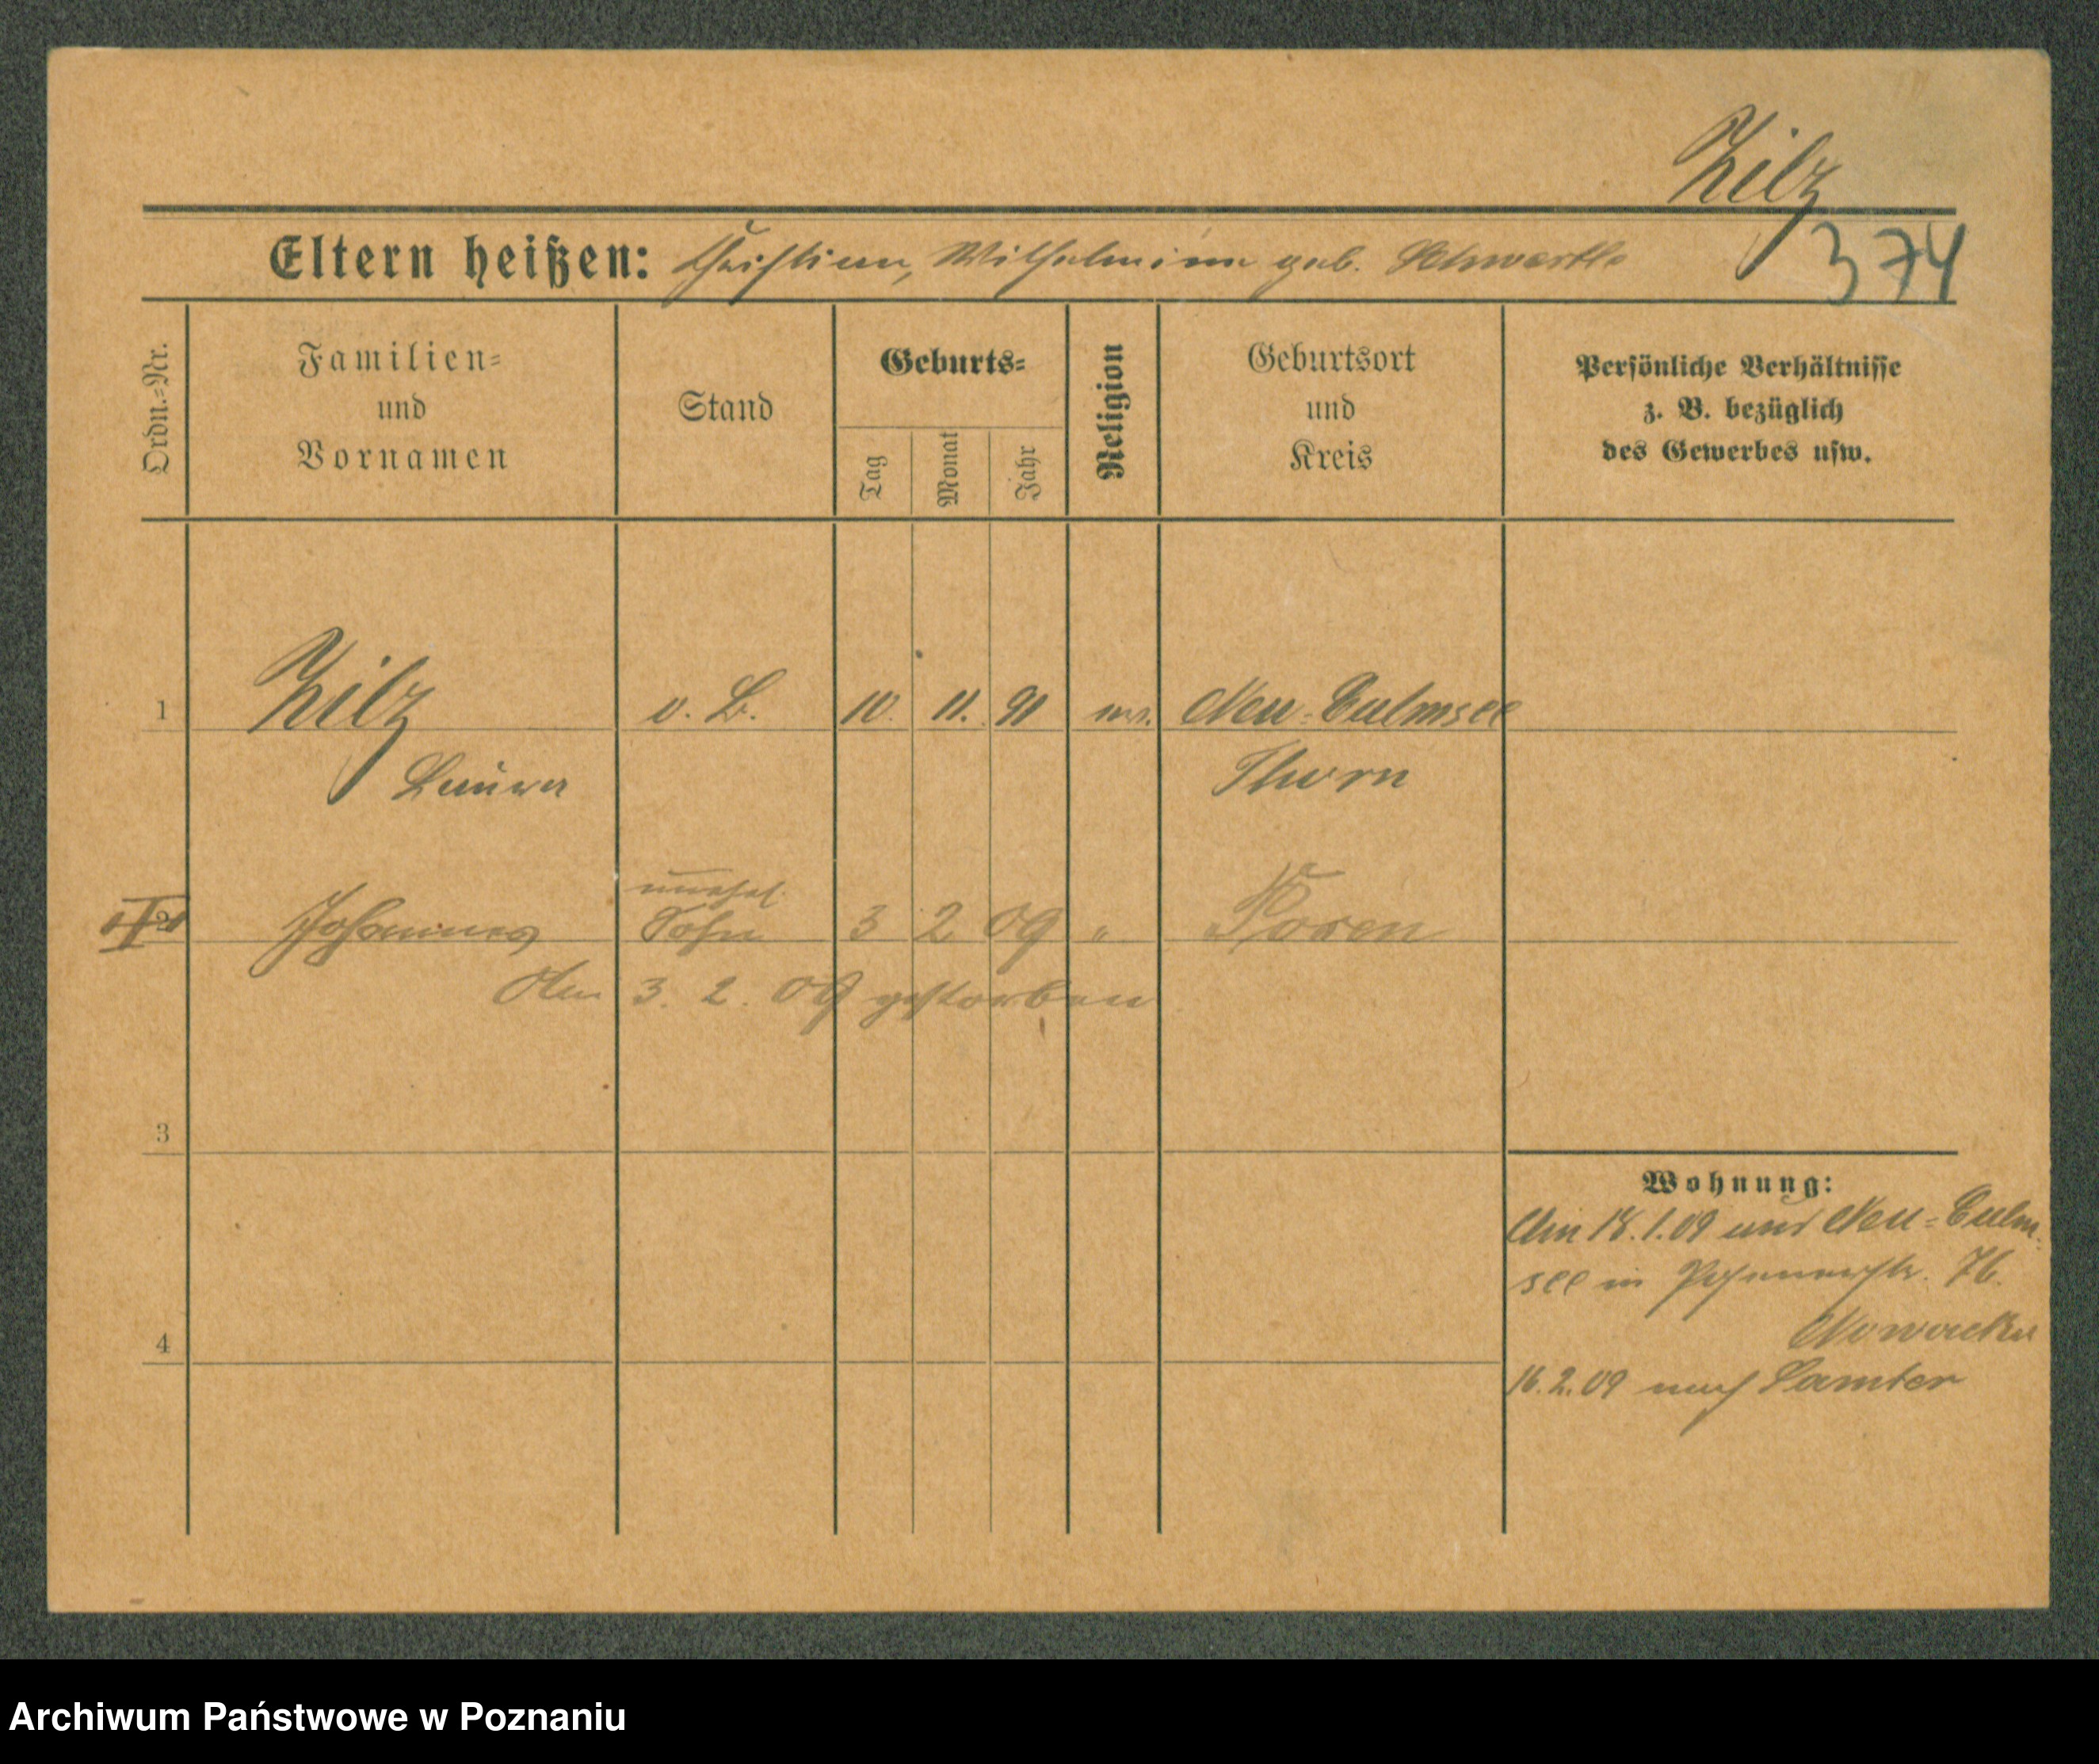 Zilz
374
Eltern heißen: Christian, Wilhelmine geb. Schwartke
Ordn.=Nr.
Familien=
und
Vornamen
Stand
Geburts=
Tag
Monat
Jahr
Religion
Geburtsort
und
Kreis
Persönliche Verhältnisse
z. B. bezüglich
des Gewerbes usw.
1 Zilz o. B. 10. 11. 91 ev. Neu=Culmsee
Laura Thorn
unehel.
2 Johannes Sohn 3 2 09 " Posen
Am 3. 2. 09 gestorben
3
4
Wohnung:
Am 18.1.09 aus Neu=Culm=
see in Posenerstr. 76.
Nowacka
16.2.09 nach Samter
Archiwum Państwowe w Poznaniu